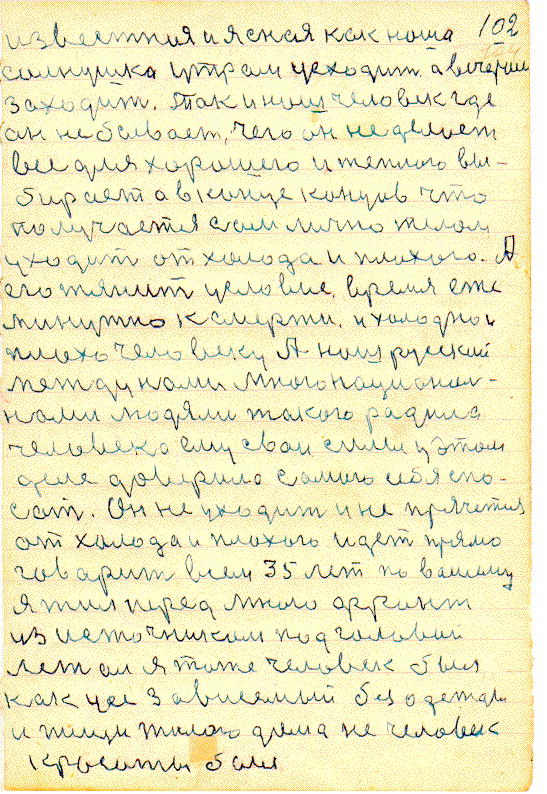 102
известния и ясная как ноша
солнушка утрам усходит а вечерам
заходит. Так и наш человек где
он не бывает, чего он не делает
все для хорошего и теплого вы-
бирает а в конце концов что
получается сам лично телом
уходит от холода и плохого. А
его тянит условие, время еже
минутно к смерти, и холодно и
плохо человеку А наш русский
между нами многонационал-
номи людями такого радила
человека ему сваи силы у этом
деле доверила самого себя спо-
сат. Он не уходит и не прячется
от холода и плохого идет прямо
говарит всем 35 лет по вашему
я жил перед мною фронт
из источником под головой
летал я тоже человек был
как усе зависемый без одежды
и пищи жилого дома не человек
красоты была